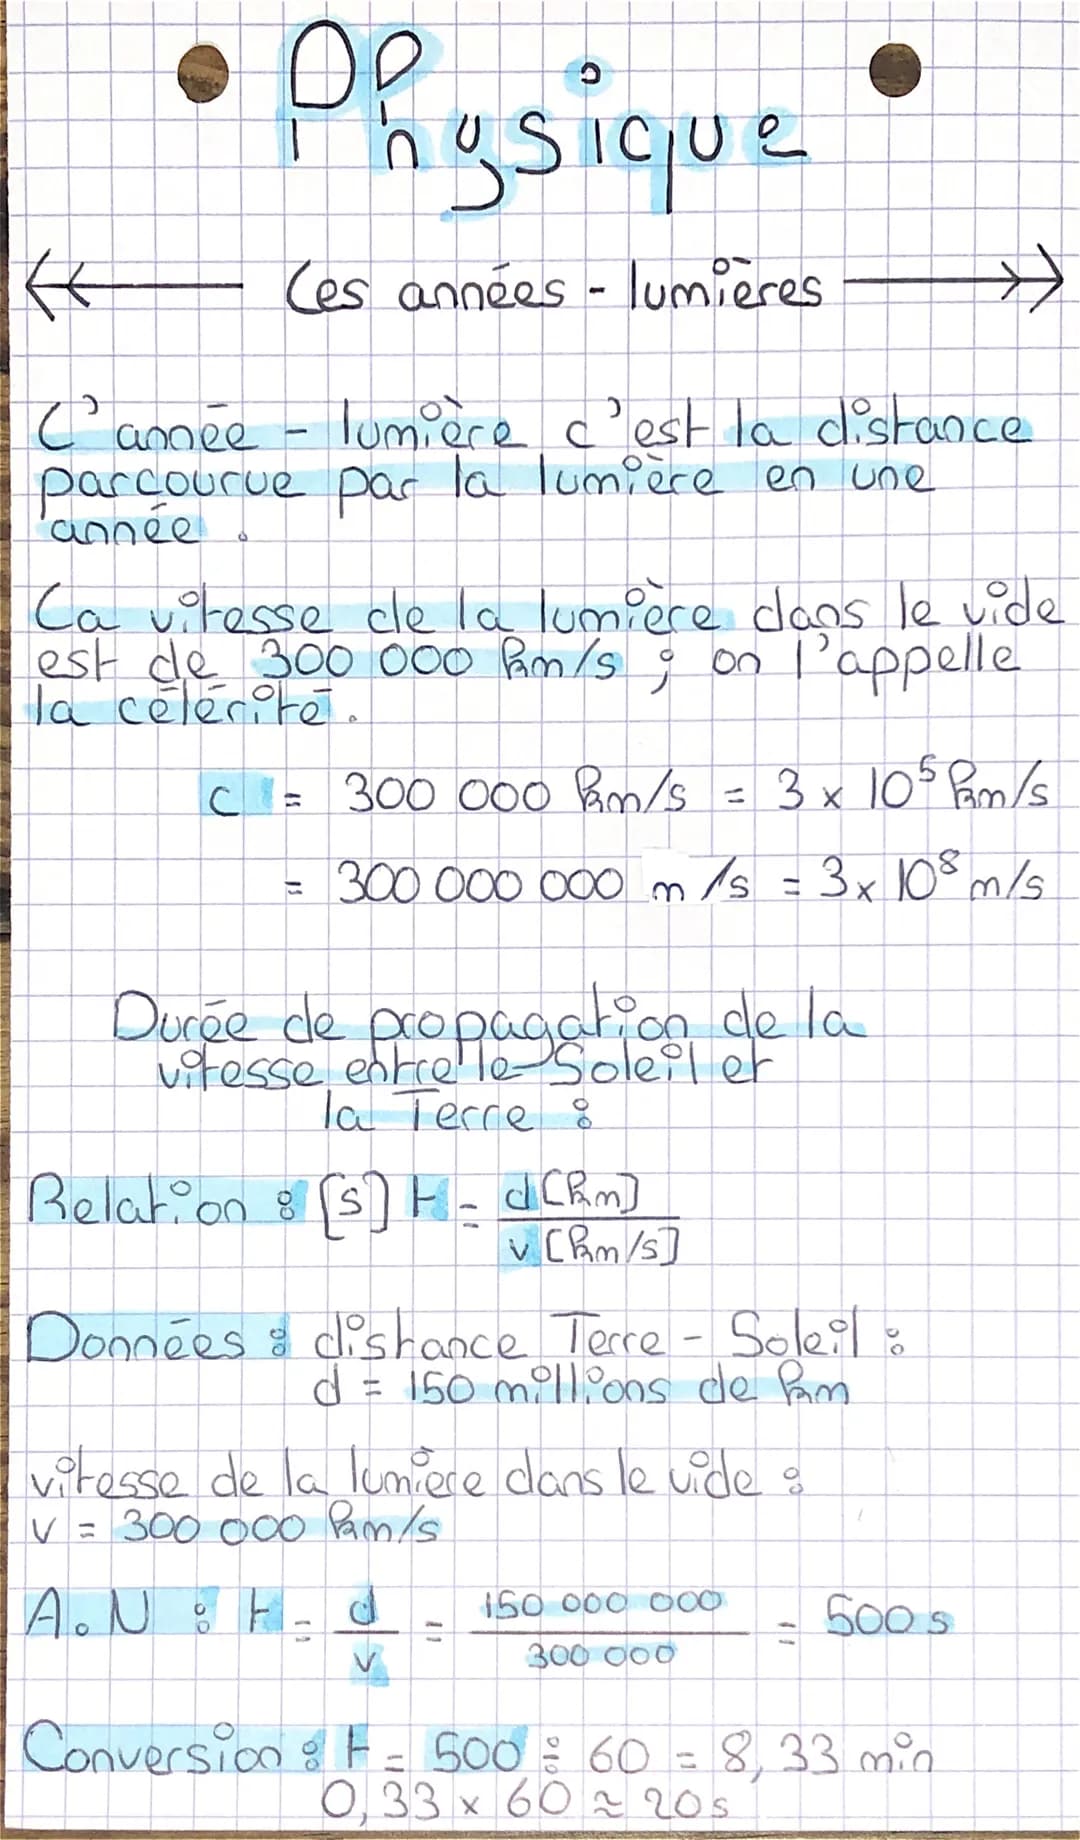 Physique
Les années - lumières
L'année - lumière c'est la distance
parcourue par la lumière en une
année.
La vitesse de la lumière dans le vide
est de 300 000 km/s ; on l'appelle
la célérité.
c = 300 000 km/s = 3 x 10⁵ km/s
= 300 000 000 m/s = 3x 10⁸ m/s
Durée de propagation de la
vitesse entre le Soleil et
la Terre :
Relation : [s] t = d[km]
v [km/s]
Données : distance Terre - Soleil :
d = 150 millions de km
vitesse de la lumière dans le vide :
v = 300 000 km/s
A.N : t = d/v = 150 000 000 / 300 000 = 500 s
Conversion : t = 500 ÷ 60 = 8,33 min
0,33 x 60 ≈ 20s